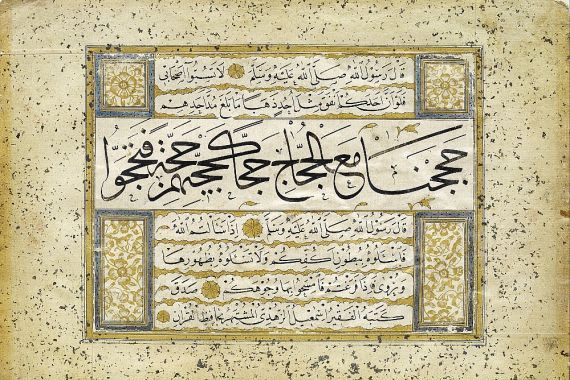 قال رسول الله صلى الله عليه وسلم لا تسبوا أصحابي
فلو أن أحدكم أنفق مثل أحد ذهبا ما بلغ مد أحدهم
حججنا مع الحجاج حجا
قال رسول الله صلى الله عليه وسلم إذا سألتم الله
فاسئلوه ببطون أكفكم ولا تسئلوه بظهورها
ويروى فإذا فرغتم فامسحوا بها وجوهكم صدق
كتبه الفقير اسمعيل الزهدي المشتهر بحافظ القرآن